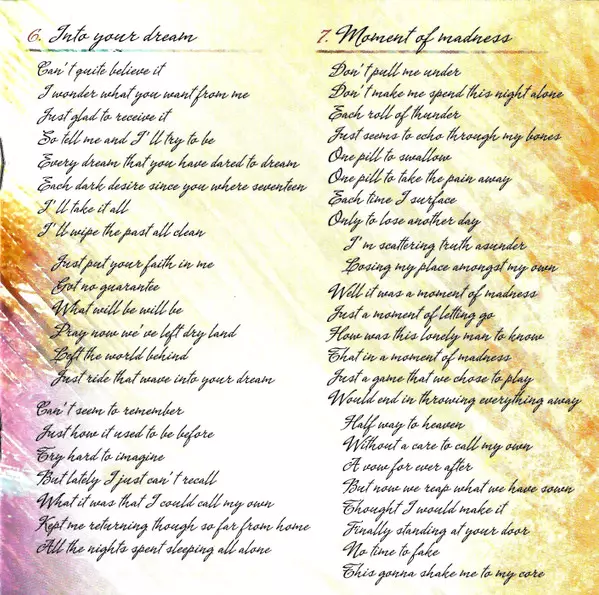 6. Into your dream
Can't quite believe it
I wonder what you want from me
Just glad to receive it
So tell me and I'll try to be
Every dream that you have dared to dream
Each dark desire since you where seventeen
I'll take it all
I'll wipe the past all clean
Just put your faith in me
Got no guarantee
What will be will be
Pray now we've left dry land
Left the world behind
Just ride that wave into your dream
Can't seem to remember
Just how it used to be before
Try hard to imagine
But lately I just can't recall
What it was that I could call my own
Kept me returning though so far from home
All the nights spent sleeping all alone
7. Moment of madness
Don't pull me under
Don't make me spend this night alone
Each roll of thunder
Just seems to echo through my bones
One pill to swallow
One pill to take the pain away
Each time I surface
Only to lose another day
I'm scattering truth asunder
Losing my place amongst my own
Well it was a moment of madness
Just a moment of letting go
How was this lonely man to know
That in a moment of madness
Just a game that we chose to play
Would end in throwing everything away
Half way to heaven
Without a care to call my own
A vow for ever after
But now we reap what we have sown
Thought I would make it
Finally standing at your door
No time to fake
This gonna shake me to my core